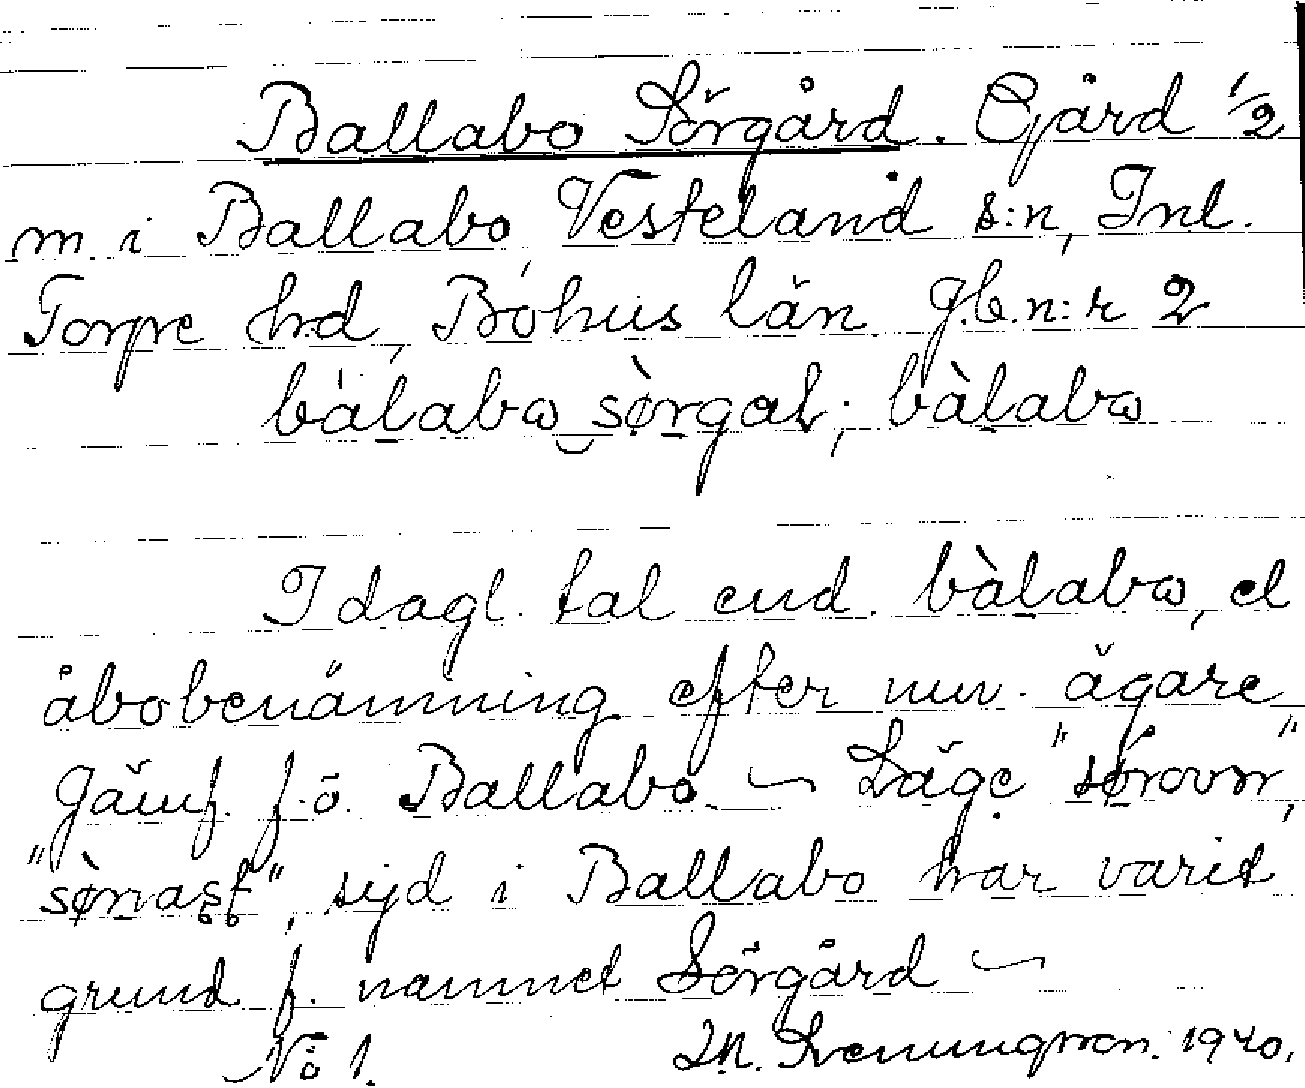 Ballabo Sörgård. Gård 1/2
m. i Ballabo, Vesteland s:n, Inl.
Torpe hrd, Bohus län. J.b.n:r 2
bàlabω sø̀rgaɫ; bàlabω
I dagl. tal end. bàlabω, el
åbobenämning efter nuv. ägare
Jämf. f.ö. Ballabo. — Läge "sørovər",
"sørrast", syd i Ballabo har varit
grund f. namnet Sörgård —
No 1. M. Svenungsson. 1940.